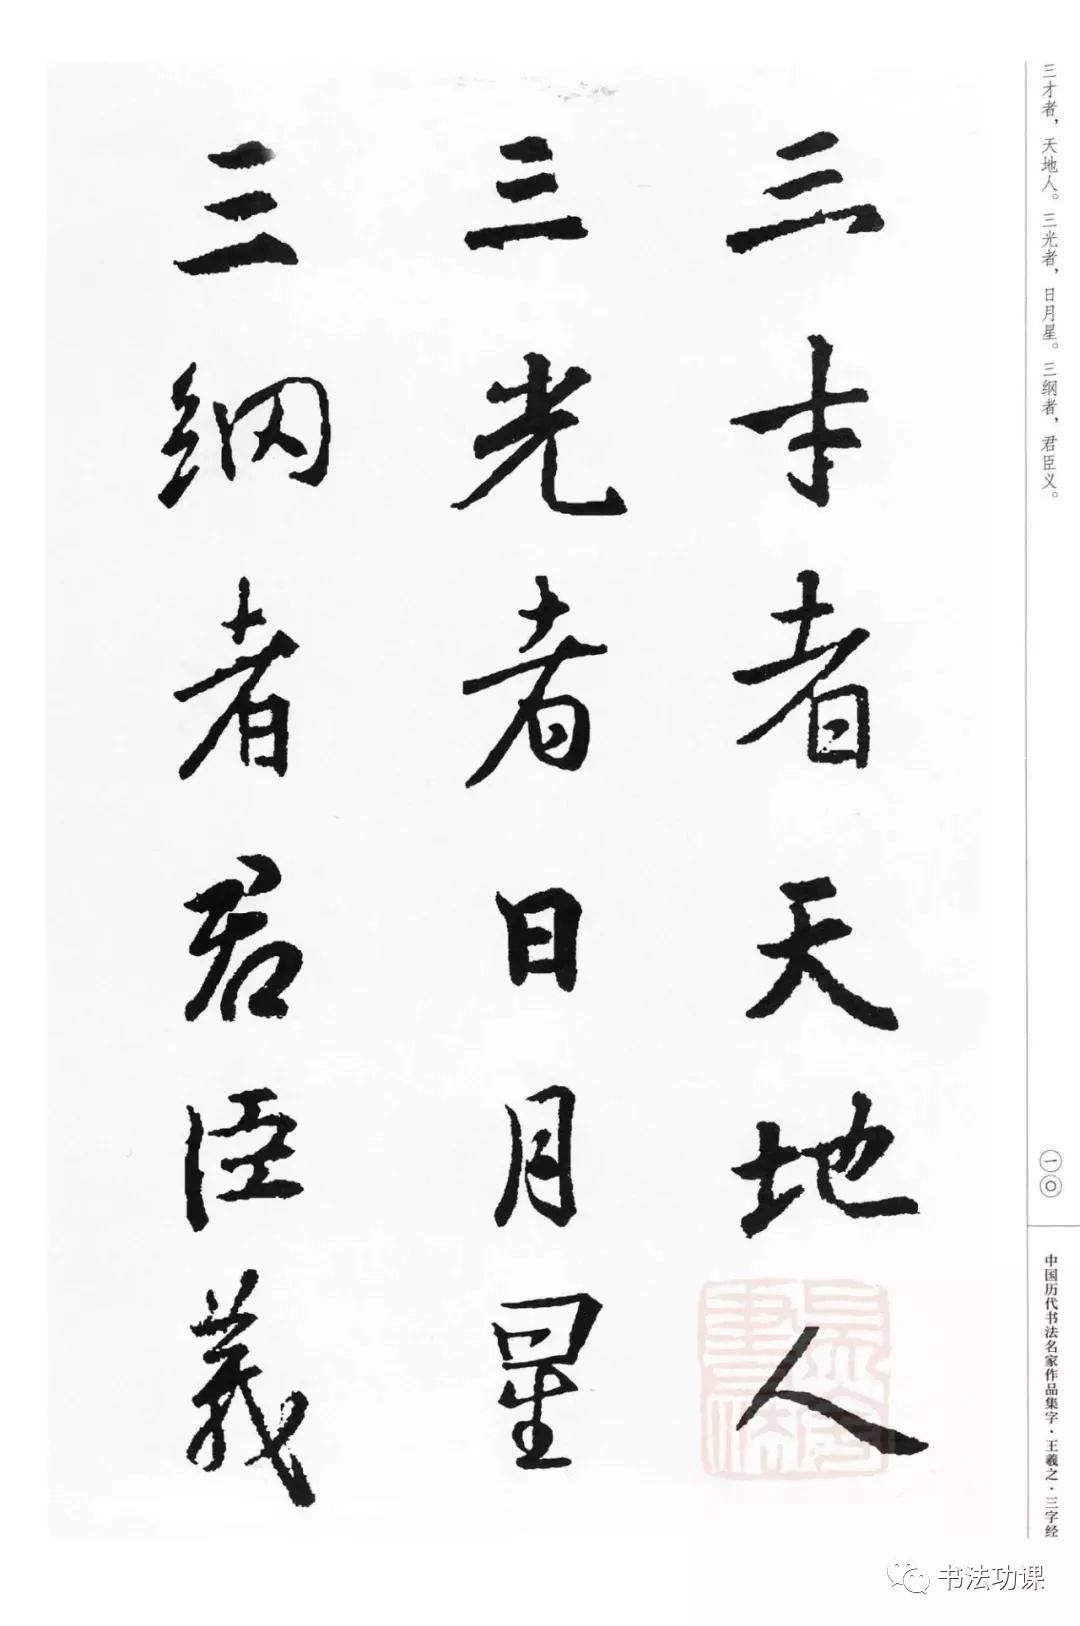 三才者，天地人。三光者，日月星。三纲者，君臣义。
三才者天地人
三光者日月星
三纲者君臣義
一〇
中国历代书法名家作品集字·王羲之·三字经
书法功课